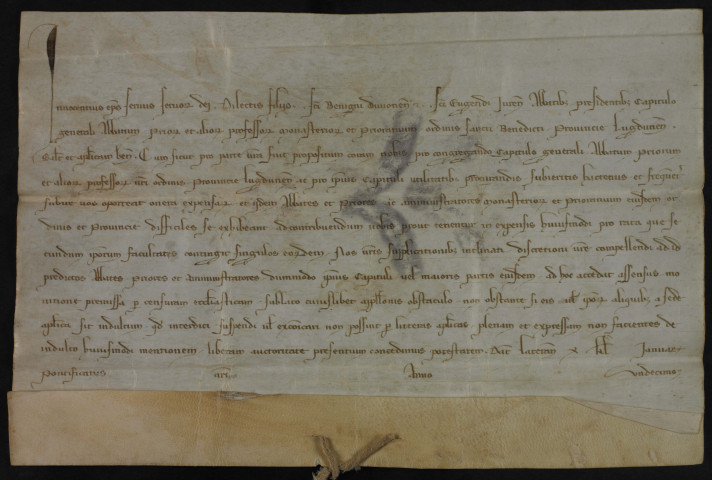 Innocentius eps servus servor dei. Dilectis filijs .. Sci Benigni Divionen et .. Sci Eugendi Juren Abbatib; presidentib; Capitulo
generali Abbatum Prior et alior professor monasterior et Prioratuum ordinis sancti Benedicti Provincie Lugdunen.
Salt et aplicam ben. Cum sicut pro parte vra fuit propositum coram nobis, pro congregando Capitulo generali Abbatum Priorum
et alior professor vri ordinis Provincie Lugdunen ac pro ipsius Capituli utilitatib; procurandis subieritis hactenus et frequenter
subire vos oporteat onera expensar et quidem Abbates et Priores ac administratores monasterior et prioratuum eiusdem or
dinis et Provincie difficiles se exhibeant ad contribuendum vobis prout tenentur in expensis huiusmodi pro rata que se
cundum ipsorum facultates contingit singulos eosdem. Nos vris supplicationib; inclinati discretioni vre compellendi ad id
predictos Abbates Priores et administratores dummodo ipsius Capituli vel maioris partis eiusdem ad hoc accedat assensus mo
nitione premissa p censuram ecclesiasticam sublato cuiuslibet appellonis obstaculo non obstante si eis vel ipsor aliquib; a sede
aplica sit indultum qd interdici suspendi vel excoicari non possint p litteras aplicas plenam et expressam non facientes de
indulto huiusmodi mentionem liberam auctoritate presentium concedimus potestatem. Dat Lateran Kl Januar
Pontificatus nri Anno undecimo